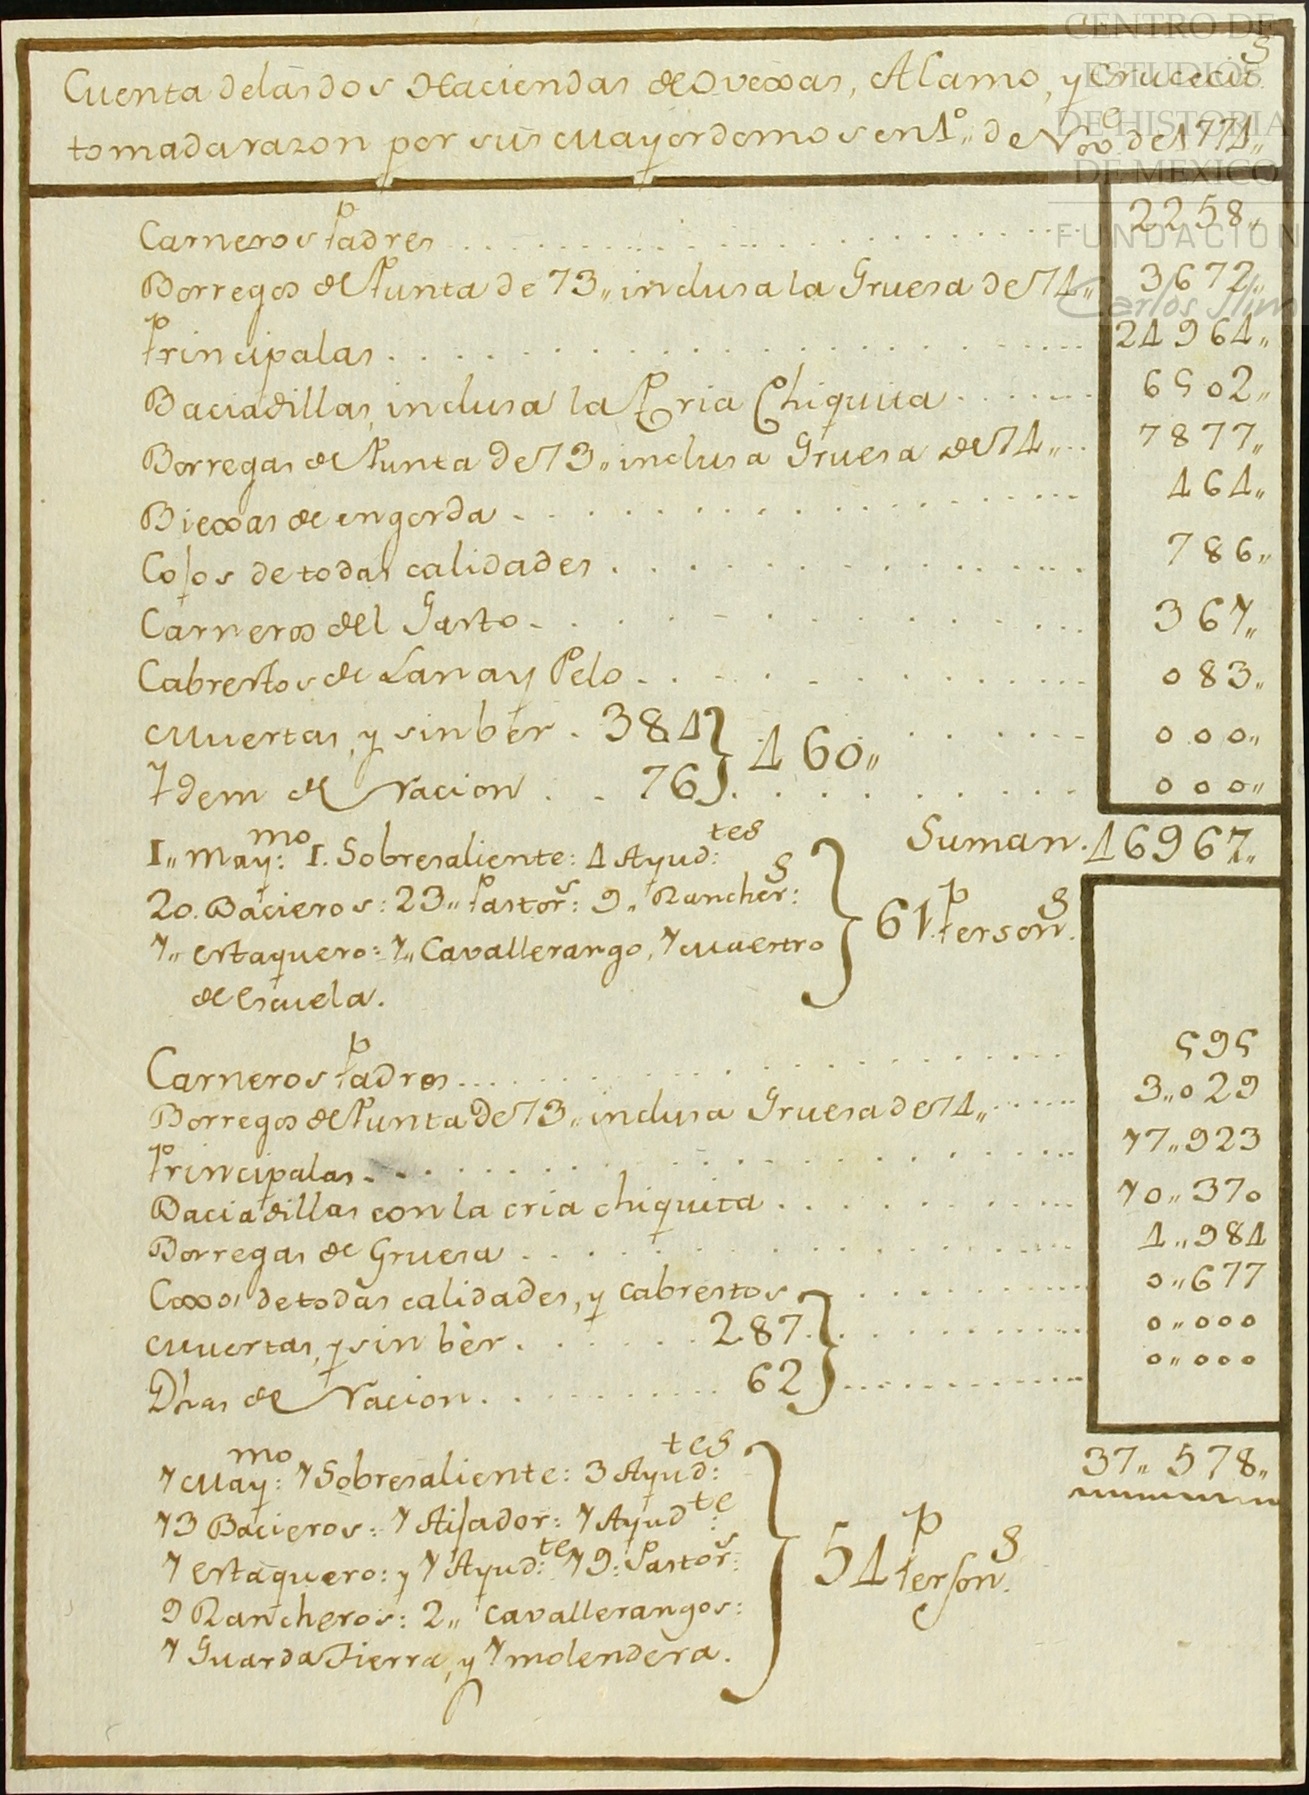 Cuenta de las dos Haciendas de Ovexas, Alamo, y Crucecit.s
tomada razon por sus Mayordomos en 1.º,, de Nov.e de 1774,,
Carneros Padres 2258,,
Borregos de Punta de 73,, inclusa la Gruesa de 74,, 3672,,
Principalas 24964,,
Baciadillas, inclusa la Cria Chiquita 6502,,
Borregas de Punta de 73,, inclusa Gruesa de 74,, 7877,,
Biexas de engorda 464,,
Cojos de todas calidades 786,,
Carneros del Gasto 367,,
Cabrestos de Lana y Pelo 083,,
Muertas, y sin ber . 384 } 460,, 000,,
Idem de Nacion . . 76 000,,
Suman. 46967,,
1,, May:mo 1. Sobresaliente: 4 Ayud:tes
20. Bacieros: 23,, Pastor.s: 9,, Rancher:s } 61 Person.s
1,, estaquero: 1,, Cavallerango, 1 Maestro
de escuela.
Carneros Padres 595
Borregos de Punta de 73,, inclusa Gruesa de 74,, 3,,029
Principalas 17,,923
Baciadillas con la cria chiquita 10,,370
Borregas de Gruesa 4,,984
Coxos, de todas calidades, y cabrestos 0,,677
Muertas, y sin bèr. 287. } 0,,000
Dhas de Nacion. 62 0,,000
37,,578,,
1 May:mo 1 Sobresaliente: 3 Ayud:tes
13 Bacieros: 1 Aijador: 1 Ayud:te
1 estaquero: y 1 Ayud:te 19: Pastor.s: } 54 Person.s
9 Rancheros: 2,, Cavallerangos:
1 Guarda Tierra, y 1 molendera.
CENTRO DE
ESTUDIOS
DE HISTORIA
DE MEXICO
FUNDACION
Carlos Slim